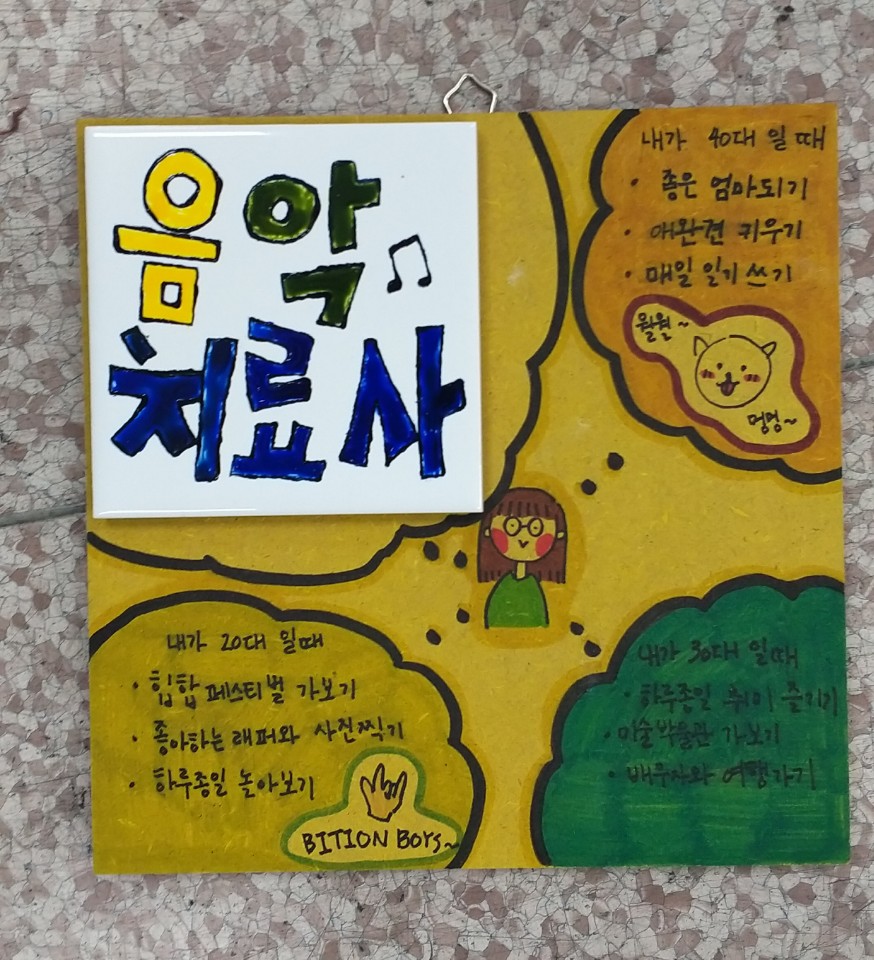 음악
치료사
내가 40대 일 때
• 좋은 엄마되기
• 애완견 키우기
• 매일 일기 쓰기
월월~
멍멍~
내가 20대 일때
• 힙합 페스티벌 가보기
• 좋아하는 래퍼와 사진찍기
• 하루종일 놀아보기
BITION BOYS~
내가 30대 일때
• 하루종일 취미 즐기기
• 미술박물관 가보기
• 배우자와 여행가기